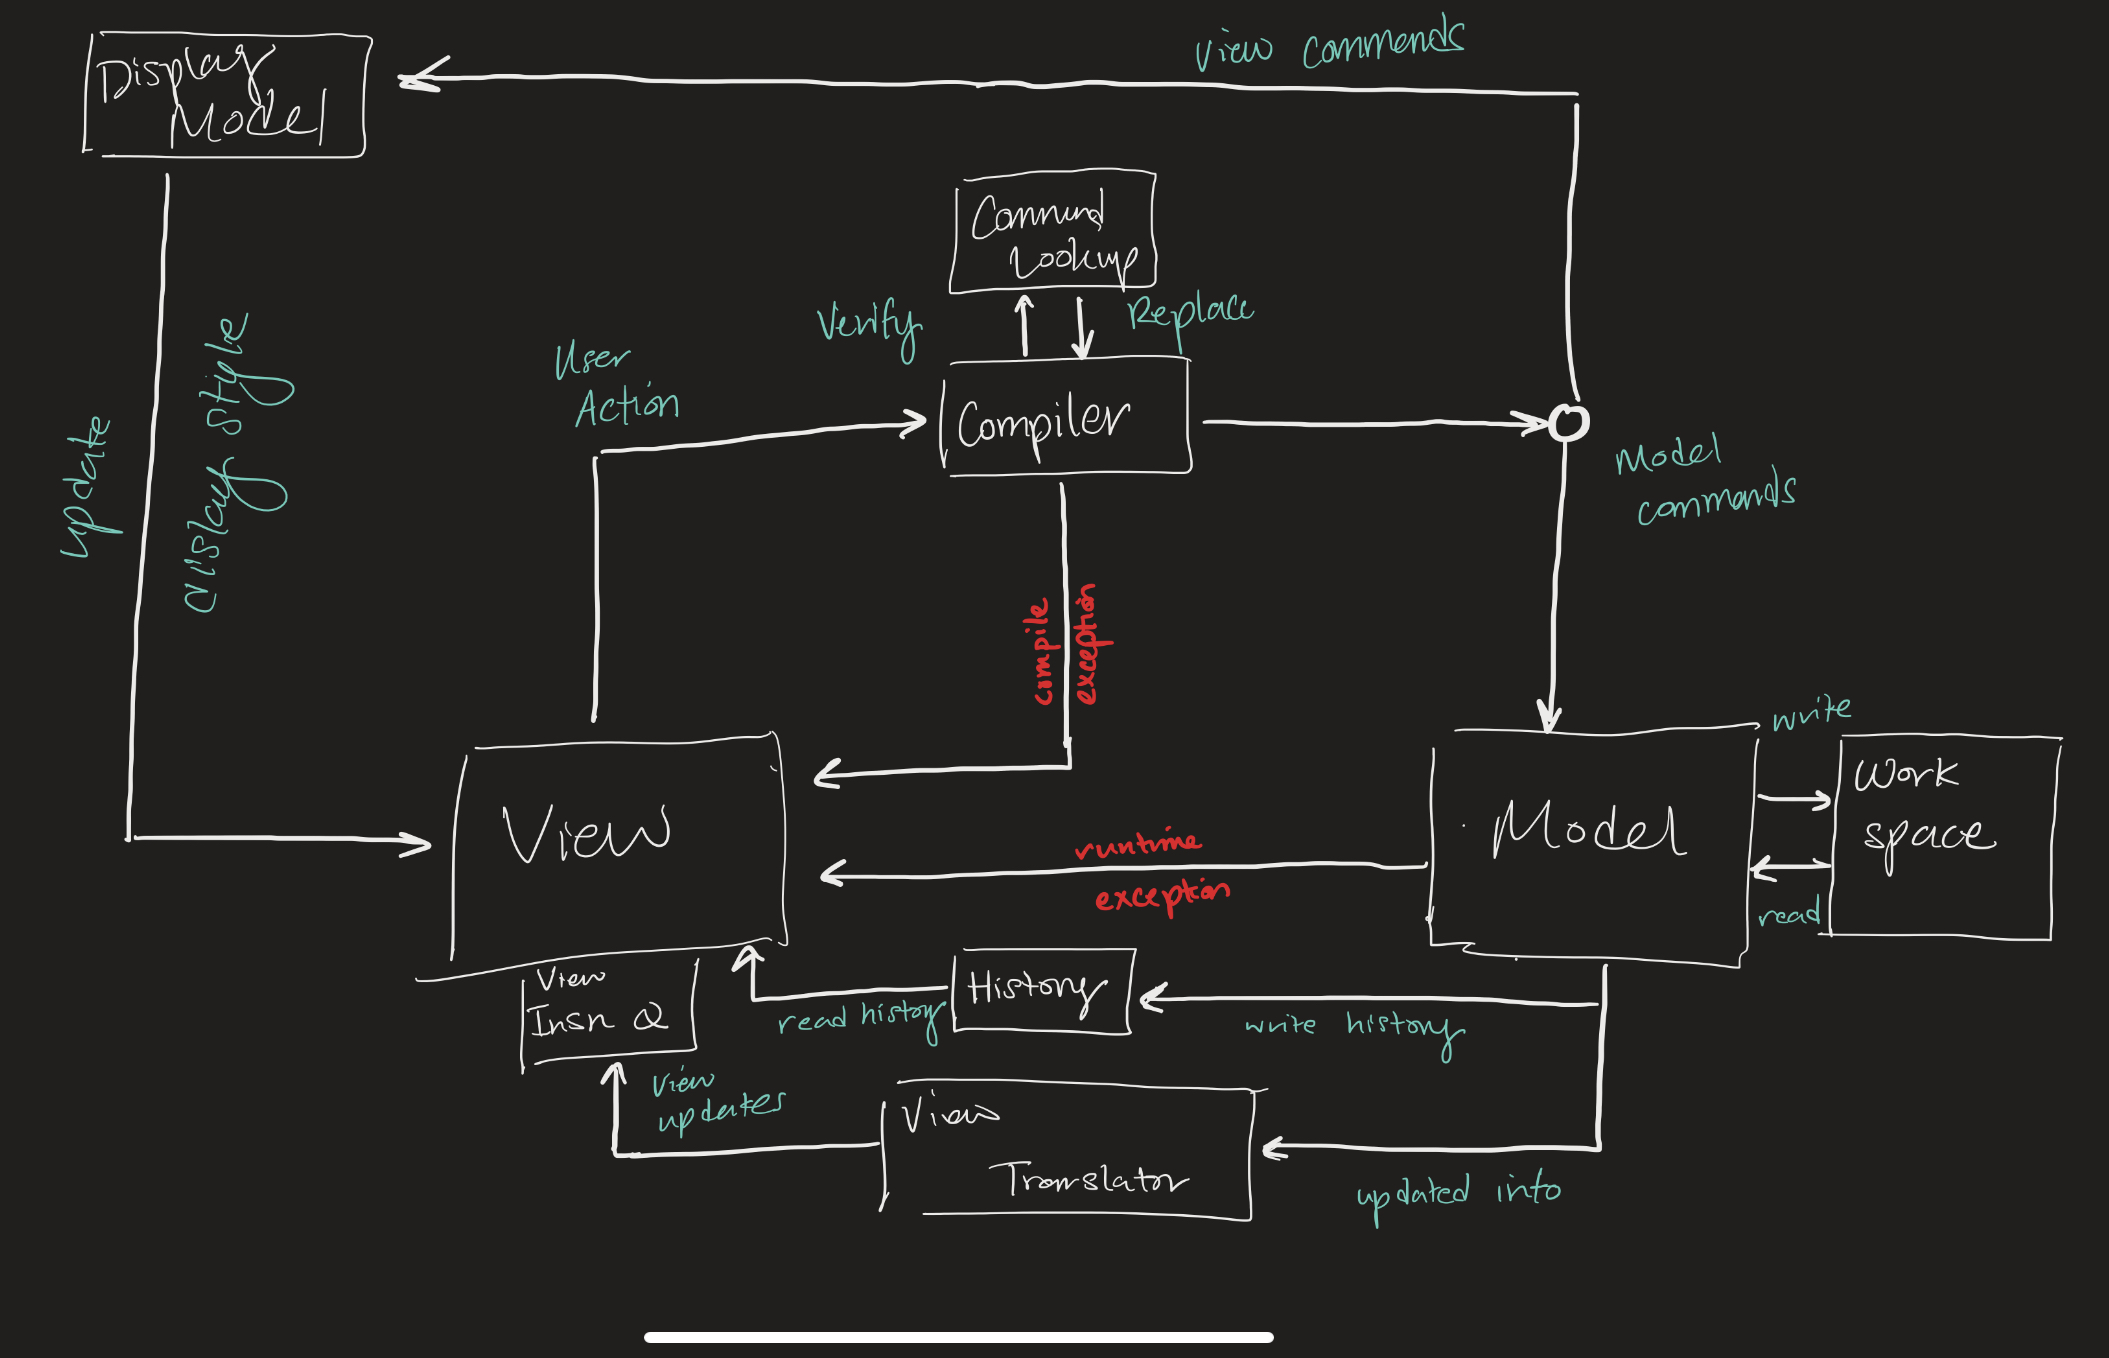 View commends
Display
Model
Commund
Lookup
Verify
Replace
User
Action
Compiler
Model
commands
update
display style
compile
exception
write
Work
space
View
runtime
exception
Model
read
View
Insn Q
read history
History
write history
view
updates
View
Translator
updated info